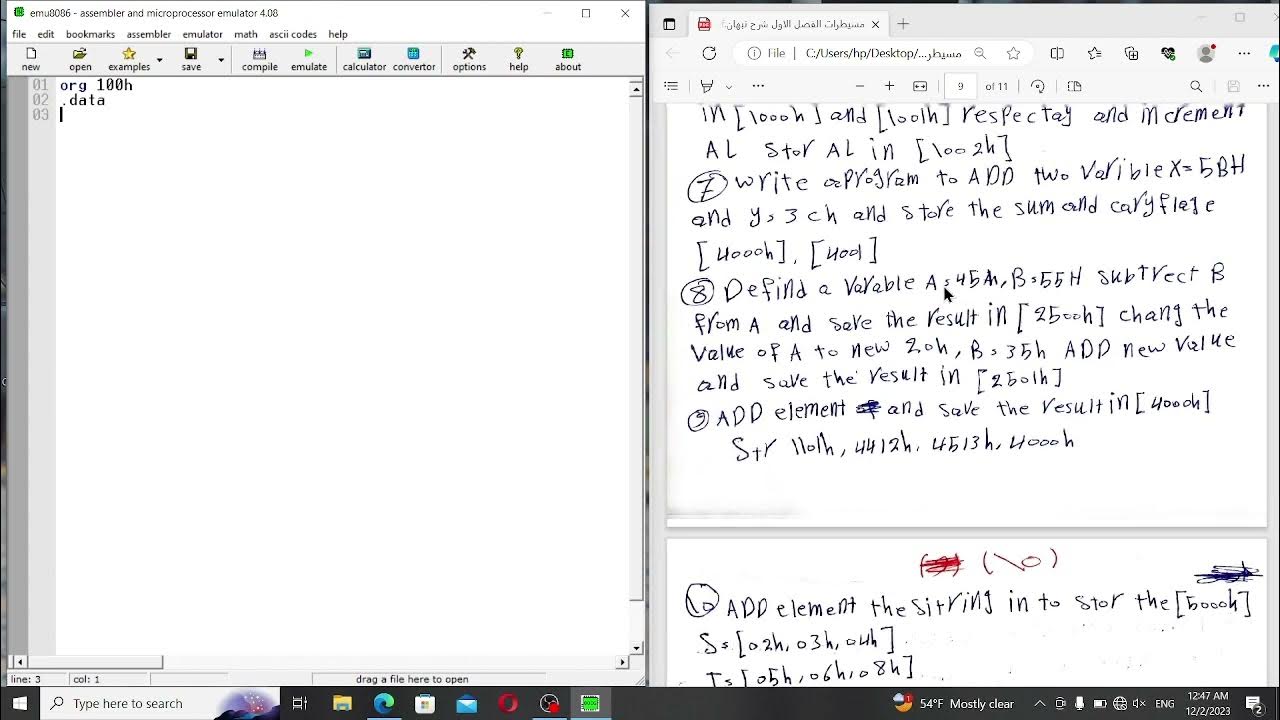 emu8086 - assembler and microprocessor emulator 4.08
file edit bookmarks assembler emulator math ascii codes help
new open examples save compile emulate calculator convertor options help about
01 org 100h
02 .data
03
line: 3 col: 1 drag a file here to open
مسيطرات الفصل الاول شرح
File C:/Users/hp/Desktop/...
9 of 11
in [1000h] and [1001h] respectay and increment
AL stor AL in [1002h]
7 write aprogram to ADD two varible X=5BH
and y=3ch and store the sum and caryflage
[4000h], [4001]
8 Defind a varable A=45h, B=55H subtrect B
from A and save the result in [2500h] chang the
value of A to new 20h, B=35h ADD new value
and save the result in [2501h]
9 ADD element and save the result in [4000h]
Str 1101h, 4412h, 4513h, 4000h
(10)
10 ADD element the sitring in to stor the [5000h]
S= [02h, 03h, 04h]
T= [05h, 06h, 08h]
Type here to search
54°F Mostly clear
ENG
12:47 AM
12/2/2023
2